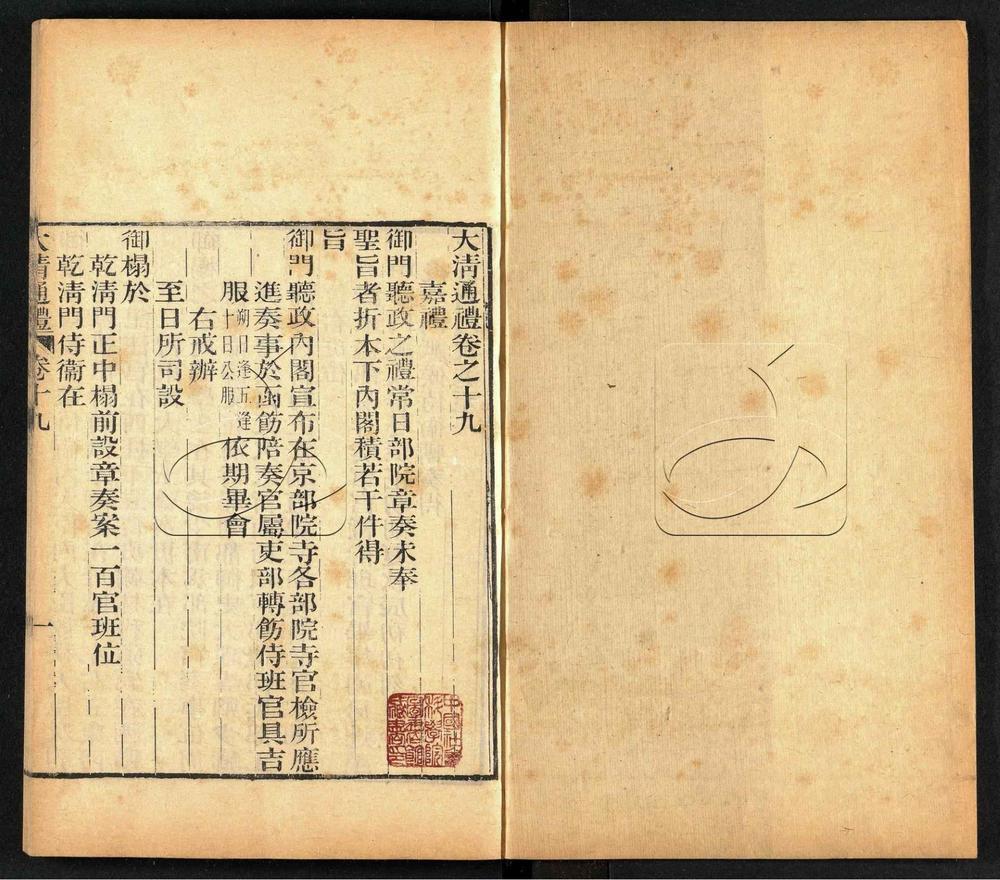 大清通禮卷之十九
嘉禮
御門聽政之禮常日部院章奏未奉
聖旨者折本下內閣積若干件得
旨
御門聽政內閣宣布在京部院寺各部院寺官檢所應
進奏事於函飭陪奏官屬吏部轉飭侍班官具吉
服朔日逢五逢十日公服依期畢會
右戒辦
至日所司設
御榻於
乾淸門正中榻前設章奏案一百官班位
乾淸門侍衞在
大清通禮 卷十九 一